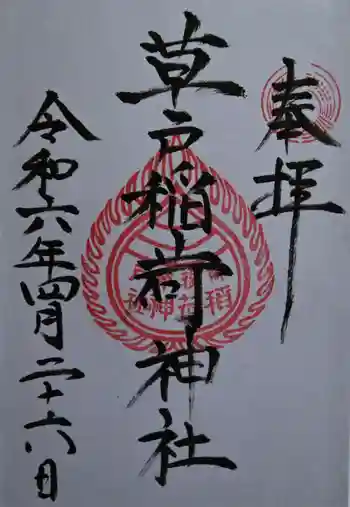 奉拝
草戸稲荷神社
令和六年四月二十六日